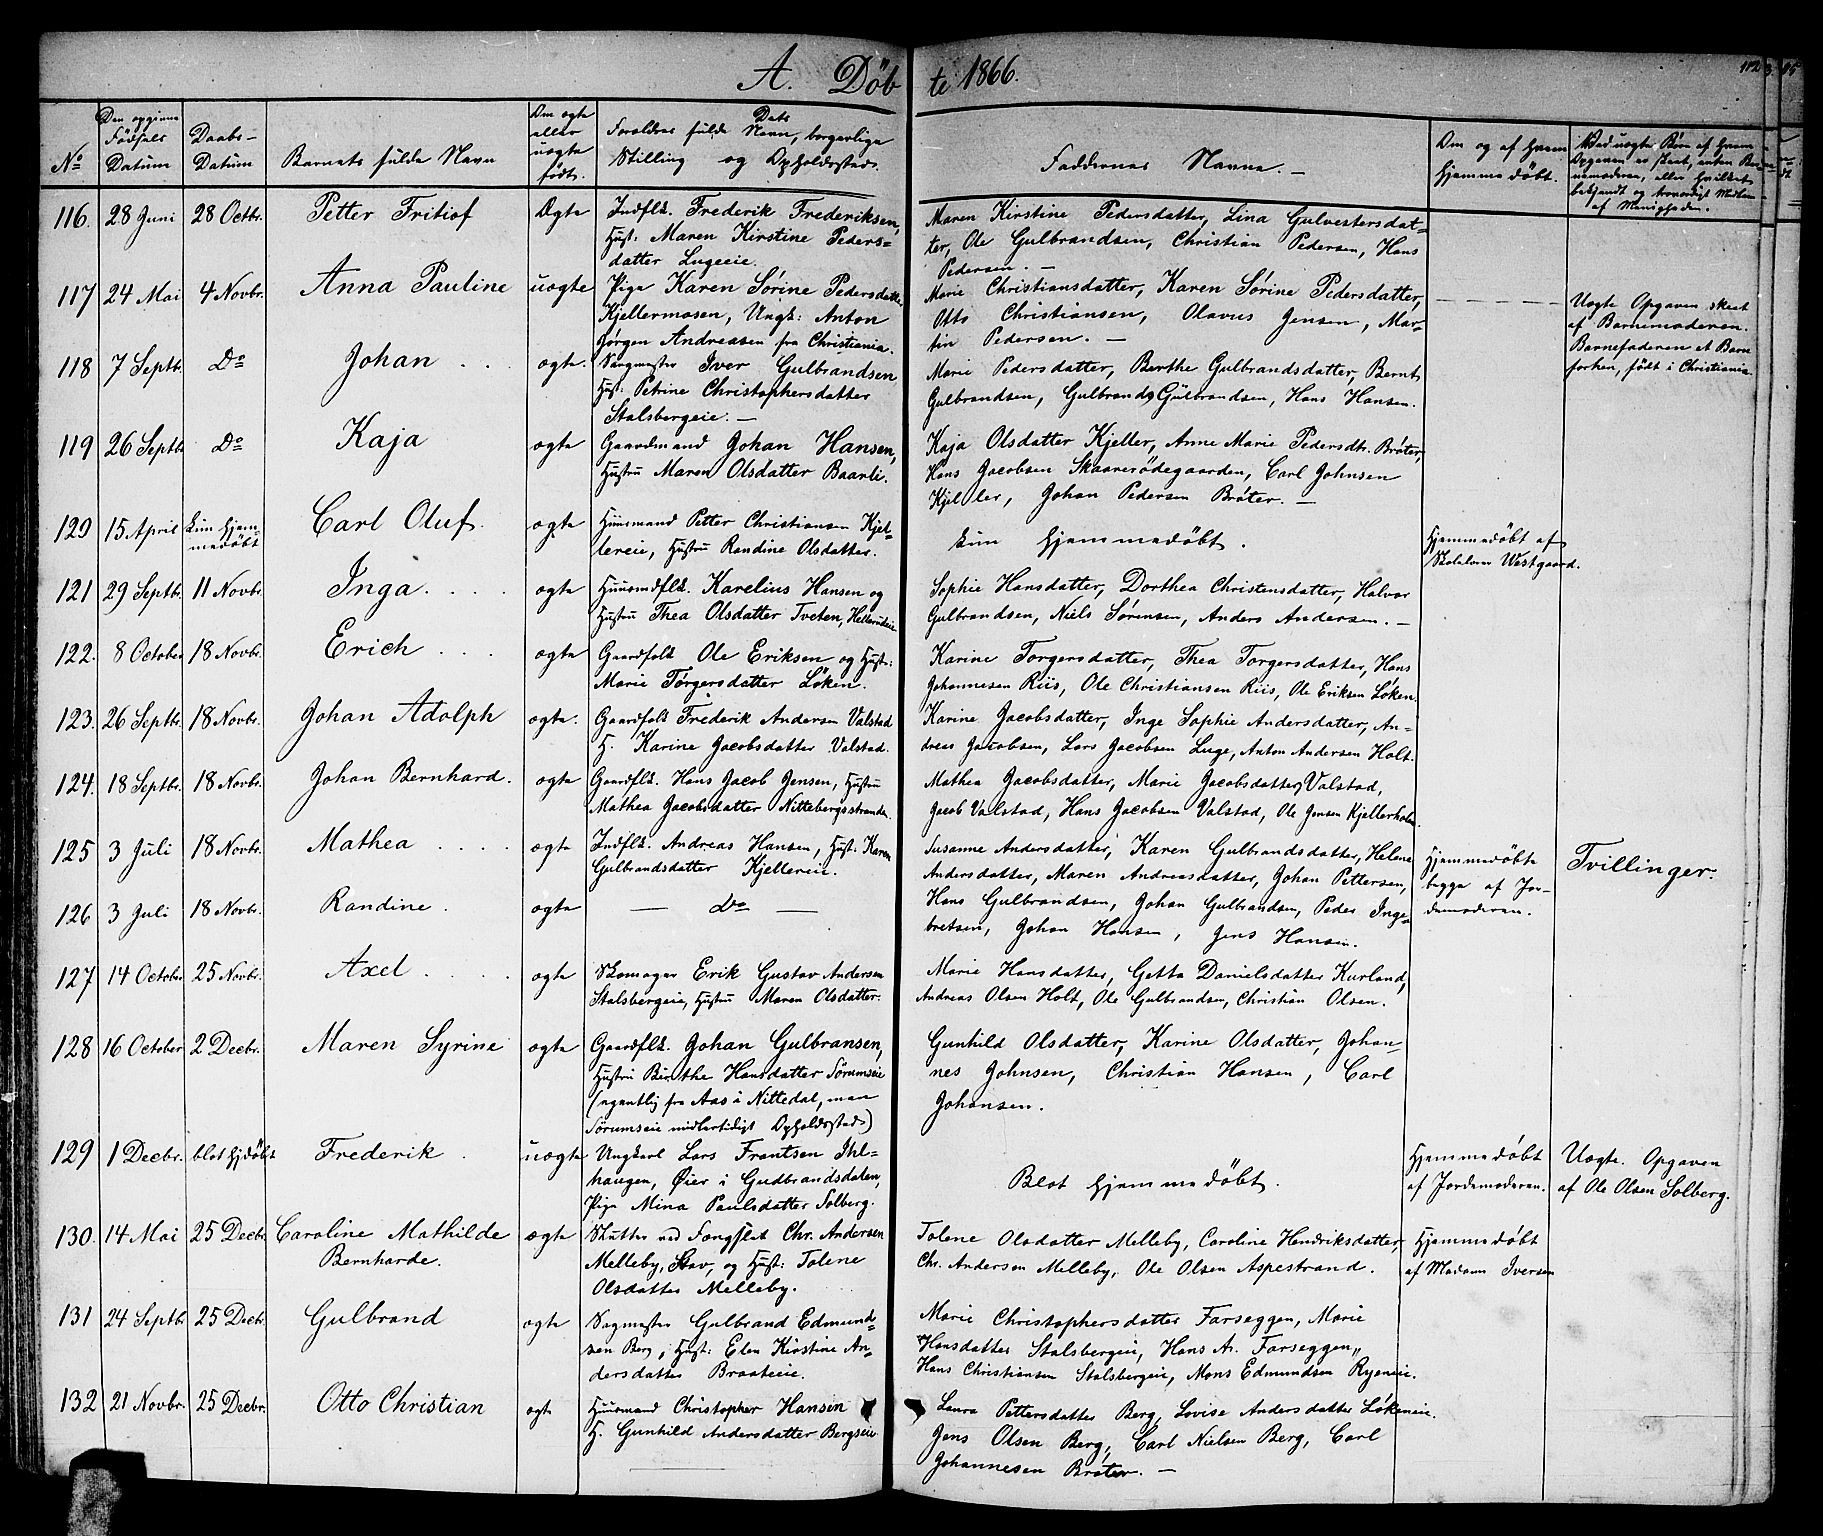 A. Döbte 1866.
112
No
Den opgivne Fødsels Datum
Daabs-Datum
Barnets fulde Navn
Om ægte eller uægte født.
Forældres fulde Navn, Dets borgerlige Stilling og Opholdssted.
Faddernes Navne. —
Om og af hvem hjemmedöbt.
Ved uægte Børn af hvem Opgaven er skeet, enten Barnemoderen, eller hvilket bekjendt og troværdigt Medlem af Menigheden.
116. 28 Juni 28 Octbr. Petter Fritiof Ægte Indflk. Frederik Frederiksen,
Hust: Maren Kirstine Peders-
datter Lugeeie.
Maren Kirstine Pedersdatter, Lina Gulvestersdat-
ter, Ole Gulbrandsen, Christian Pedersen, Hans
Pedersen. —
117 24 Mai 4 Novbr. Anna Pauline uægte Pige Karen Sörine Pedersdatter
Kjellermosen, Ungk: Anton
Jörgen Andreasen fra Christiania.
Marie Christiansdatter, Karen Sörine Pedersdatter,
Otto Christiansen, Olavus Jensen, Mar-
tin Pedersen. —
Uægte Opgaven skeet
af Barnemoderen.
Barnefaderen et Barn
forhen, født i Christiania.
118 7 Septbr. Do Johan . . ægte. Sagmester Iver Gulbrandsen
Hust: Petrine Christophersdatter
Stalsbergeie. —
Marie Pedersdatter, Berthe Gulbrandsdatter, Bernt
Gulbrandsen, Gulbrand Gulbrandsen, Hans Hansen.
119 26 Septbr Do Kaja ægte Gaardmand Johan Hansen,
Hustru Maren Olsdatter Baarli.
Kaja Olsdatter Kjeller, Anne Marie Pedersdtr. Bröter,
Hans Jacobsen Skaareröde​gaarden, Carl Johnsen
Kjeller, Johan Pedersen Bröter. —
120 15 April kun hjem-
medöbt Carl Oluf. ægte Huusmand Petter Christiansen Kjel-
lereie, Hustru Randine Olsdatter.
kun hjemmedöbt.
Hjemmedöbt af
Skolelærer Westgaard.
121 29 Septbr. 11 Novbr. Inga . . . . ægte Huusmdflk. Karelius Hansen og
Hustru Thea Olsdatter Tveten, Hellerudeie
Sophie Hansdatter, Dorthea Christensdatter, Halvor
Gulbrandsen, Niels Sörensen, Anders Andersen. —
122. 8 October 18 Novbr. Erich . . . ægte Gaardfolk Ole Eriksen og Hust:
Marie Torgersdatter Löken.
Karine Torgersdatter, Thea Torgersdatter, Hans
Johannesen Riis, Ole Christiansen Riis, Ole Eriksen Löken.
123. 26 Septbr. 18 Novbr. Johan Adolph ægte. Gaardfolk Frederik Andersen Valstad
H. Karine Jacobsdatter Valstad.
Karine Jacobsdatter, Inge Sophie Andersdatter, An-
dreas Jacobsen, Lars Jacobsen Luge, Anton Andersen Holt.
124. 18 Septbr. 18 Novbr. Johan Bernhard. ægte Gaardflk. Hans Jacob Jensen, Hustru
Mathea Jacobsdatter Nittebergsstranden.
Mathea Jacobsdatter, Marie Jacobsdatter Valstad,
Jacob Valstad, Hans Jacobsen Valstad, Ole Jensen Kjellerholm.
125 3 Juli 18 Novbr. Mathea . . . . ægte Indflk. Andreas Hansen, Hust: Karen
Gulbrandsdatter Kjellereie.
Susanne Andersdatter, Karen Gulbrandsdatter, Helene
Andersdatter, Maren Andreasdatter, Johan Pettersen,
Hjemmedöbte
begge af Jor-
demoderen.
Tvillinger.
126 3 Juli 18 Novbr. Randine . ægte — Do —
Hans Gulbrandsen, Johan Gulbrandsen, Peder Inge-
bretsen, Johan Hansen, Jens Hansen.
127 14 October 25 Novbr. Axel . . . ægte Skomager Erik Gustav Andersen
Stalsbergeie, Hustru Maren Olsdatter.
Marie Hansdatter, Getta Danielsdatter Kurland,
Andreas Olsen Holt, Ole Gulbrandsen, Christian Olsen.
128 16 October 2 Decbr. Maren Syrine ægte Gaardflk. Johan Gulbransen,
Hustru Berthe Hansdatter Sörumseie
(egentlig fra Aas i Nittedal, men
Sörumseie midlertidigt Opholdssted)
Gunhild Olsdatter, Karine Olsdatter, Johan-
nes Johnsen, Christian Hansen, Carl
Johansen.
129 1 Decbr. blot hjdöbt Frederik . uægte Ungkarl Lars Frantsen Ihl-
haugen, Øier i Gudbrandsdalen,
Pige Mina Paulsdatter Solberg.
Blot hjemmedöbt.
Hjemmedöbt
af Jordemoderen.
Uægte. Opgaven
af Ole Olsen Solberg.
130. 14 Mai 25 Decbr. Caroline Mathilde
Bernharde. ægte Slutter ved Fængslet Chr. Andersen
Melleby, Stav, og Hust: Tolene
Olsdatter Melleby.
Tolene Olsdatter Melleby, Caroline Hendriksdatter,
Chr. Andersen Melleby, Ole Olsen Aspestrand.
Hjemmedöbt
af Madam Iversen
131 24 Septbr 25 Decbr. Gulbrand ægte Sagmester Gulbrand Edmund-
sen Berg, Hust: Elen Kirstine An-
dersdatter Braateeie.
Marie Christophersdatter Farseggen, Marie
Hansdatter Stalsbergeie, Hans A. Farseggen,
Hans Christiansen Stalsbergeie, Mons Edmundsen Ryeneie.
132 21 Novbr. 25 Decbr. Otto Christian ægte Huusmand Christopher Hansen
H. Gunhild Andersdatter Bergseie
Laura Pettersdatter Berg, Lovise Andersdatter Lökeneie.
Jens Olsen Berg, Carl Nielsen Berg, Carl
Johannesen Bröter. —